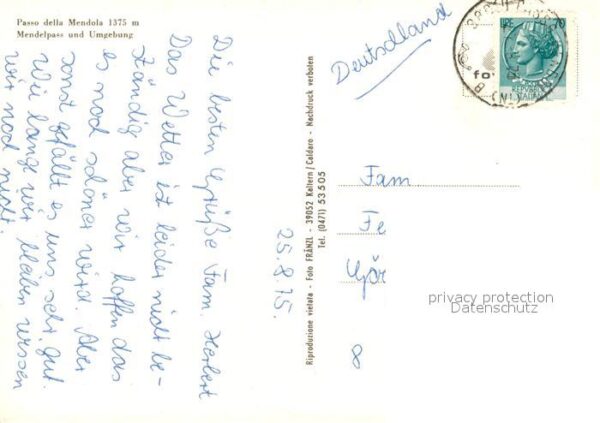 Passo della Mendola 1375 m
Mendelpass und Umgebung
Die besten Grüße Fam. Herbert
Das Wetter ist leider nicht be-
ständig aber wir hoffen das
es noch schöner wird. Aber
sonst gefällt es uns sehr gut.
Wie lange wir bleiben wissen
wir noch nicht.
25.8.75.
Riproduzione vietata - Foto FRÄNZL - 39052 Kaltern/Caldaro - Nachdruck verboten
Tel. (0471) 53505
Deutschland
Fam
Fe
Gör
8
privacy protection
Datenschutz